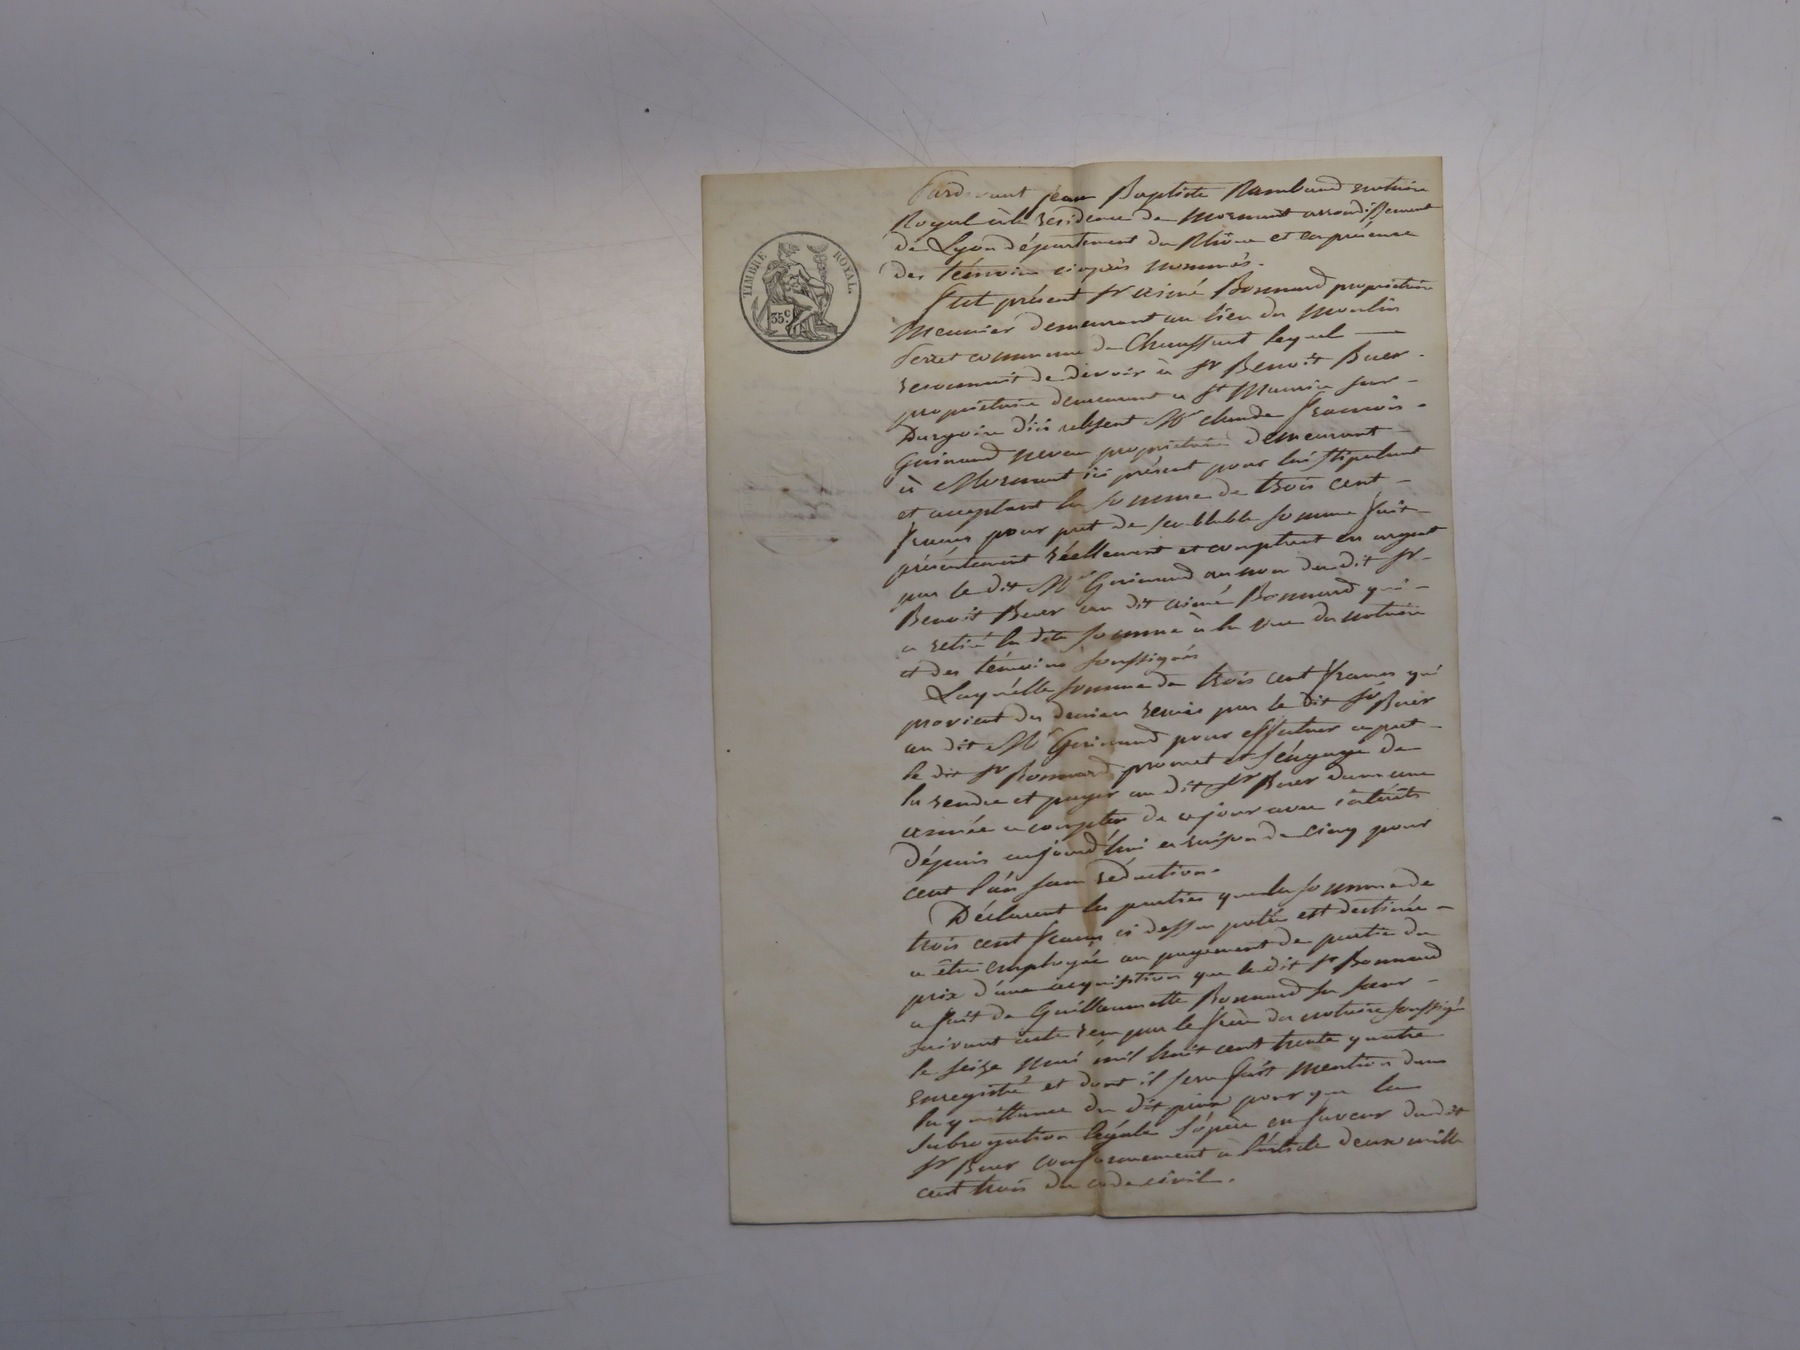 TIMBRE ROYAL.
35 c.
Pardevant jean Baptiste Rambaud notaire
Royal à la résidence de Mornant arrondissement
de Lyon département du Rhône et en présence
des témoins ciaprès nommés.
fut présent Sr aimé Bonnard propriétaire
Meunier demeurant au lieu du Moulin
ferret commune de Chaussant lequel
reconnait de devoir à Sr Benoit Buer
propriétaire demeurant a St Maurice sur
Dargoire d'ici absent Mr claude françois
Guinand neveu propriétaire demeurant
à Mornant ici présent pour lui stipulant
et acceptant la somme de trois cent
francs pour pret de semblable somme fait
présentement réellement et comptant en argent
par le dit Mr Guinand au nom du dit Sr
Benoit Buer au dit aimé Bonnard qui
a retiré la dite somme à la vue du notaire
et des témoins soussignés
Laquelle somme de trois cent francs qui
provient des deniers remis par le dit Sr Buer
au dit Mr Guinand pour effectuer ce pret
le dit Sr Bonnard promet et s'engage de
la rendre et payer au dit Sr Buer dans une
année a compter de ce jour avec intérêts
dépuis aujourd'hui en raison de cinq pour
cent l'an sans réduction.
Déclarent les parties que la somme de
trois cent francs ci dessus pretée est destinée
a être employée au payement de partie du
prix d'une acquisition que le dit Sr Bonnard
a fait de Guillaumette Bonnard sa sœur
suivant acte reçu par le frère du notaire soussigné
le seize mai mil huit cent trente quatre
enregistré et dont il sera fait mention dans
la quittance du dit prix pour que la
subrogation légale s'opère en faveur du dit
Sr Buer conformement à l'article deux mille
cent trois du code civil.